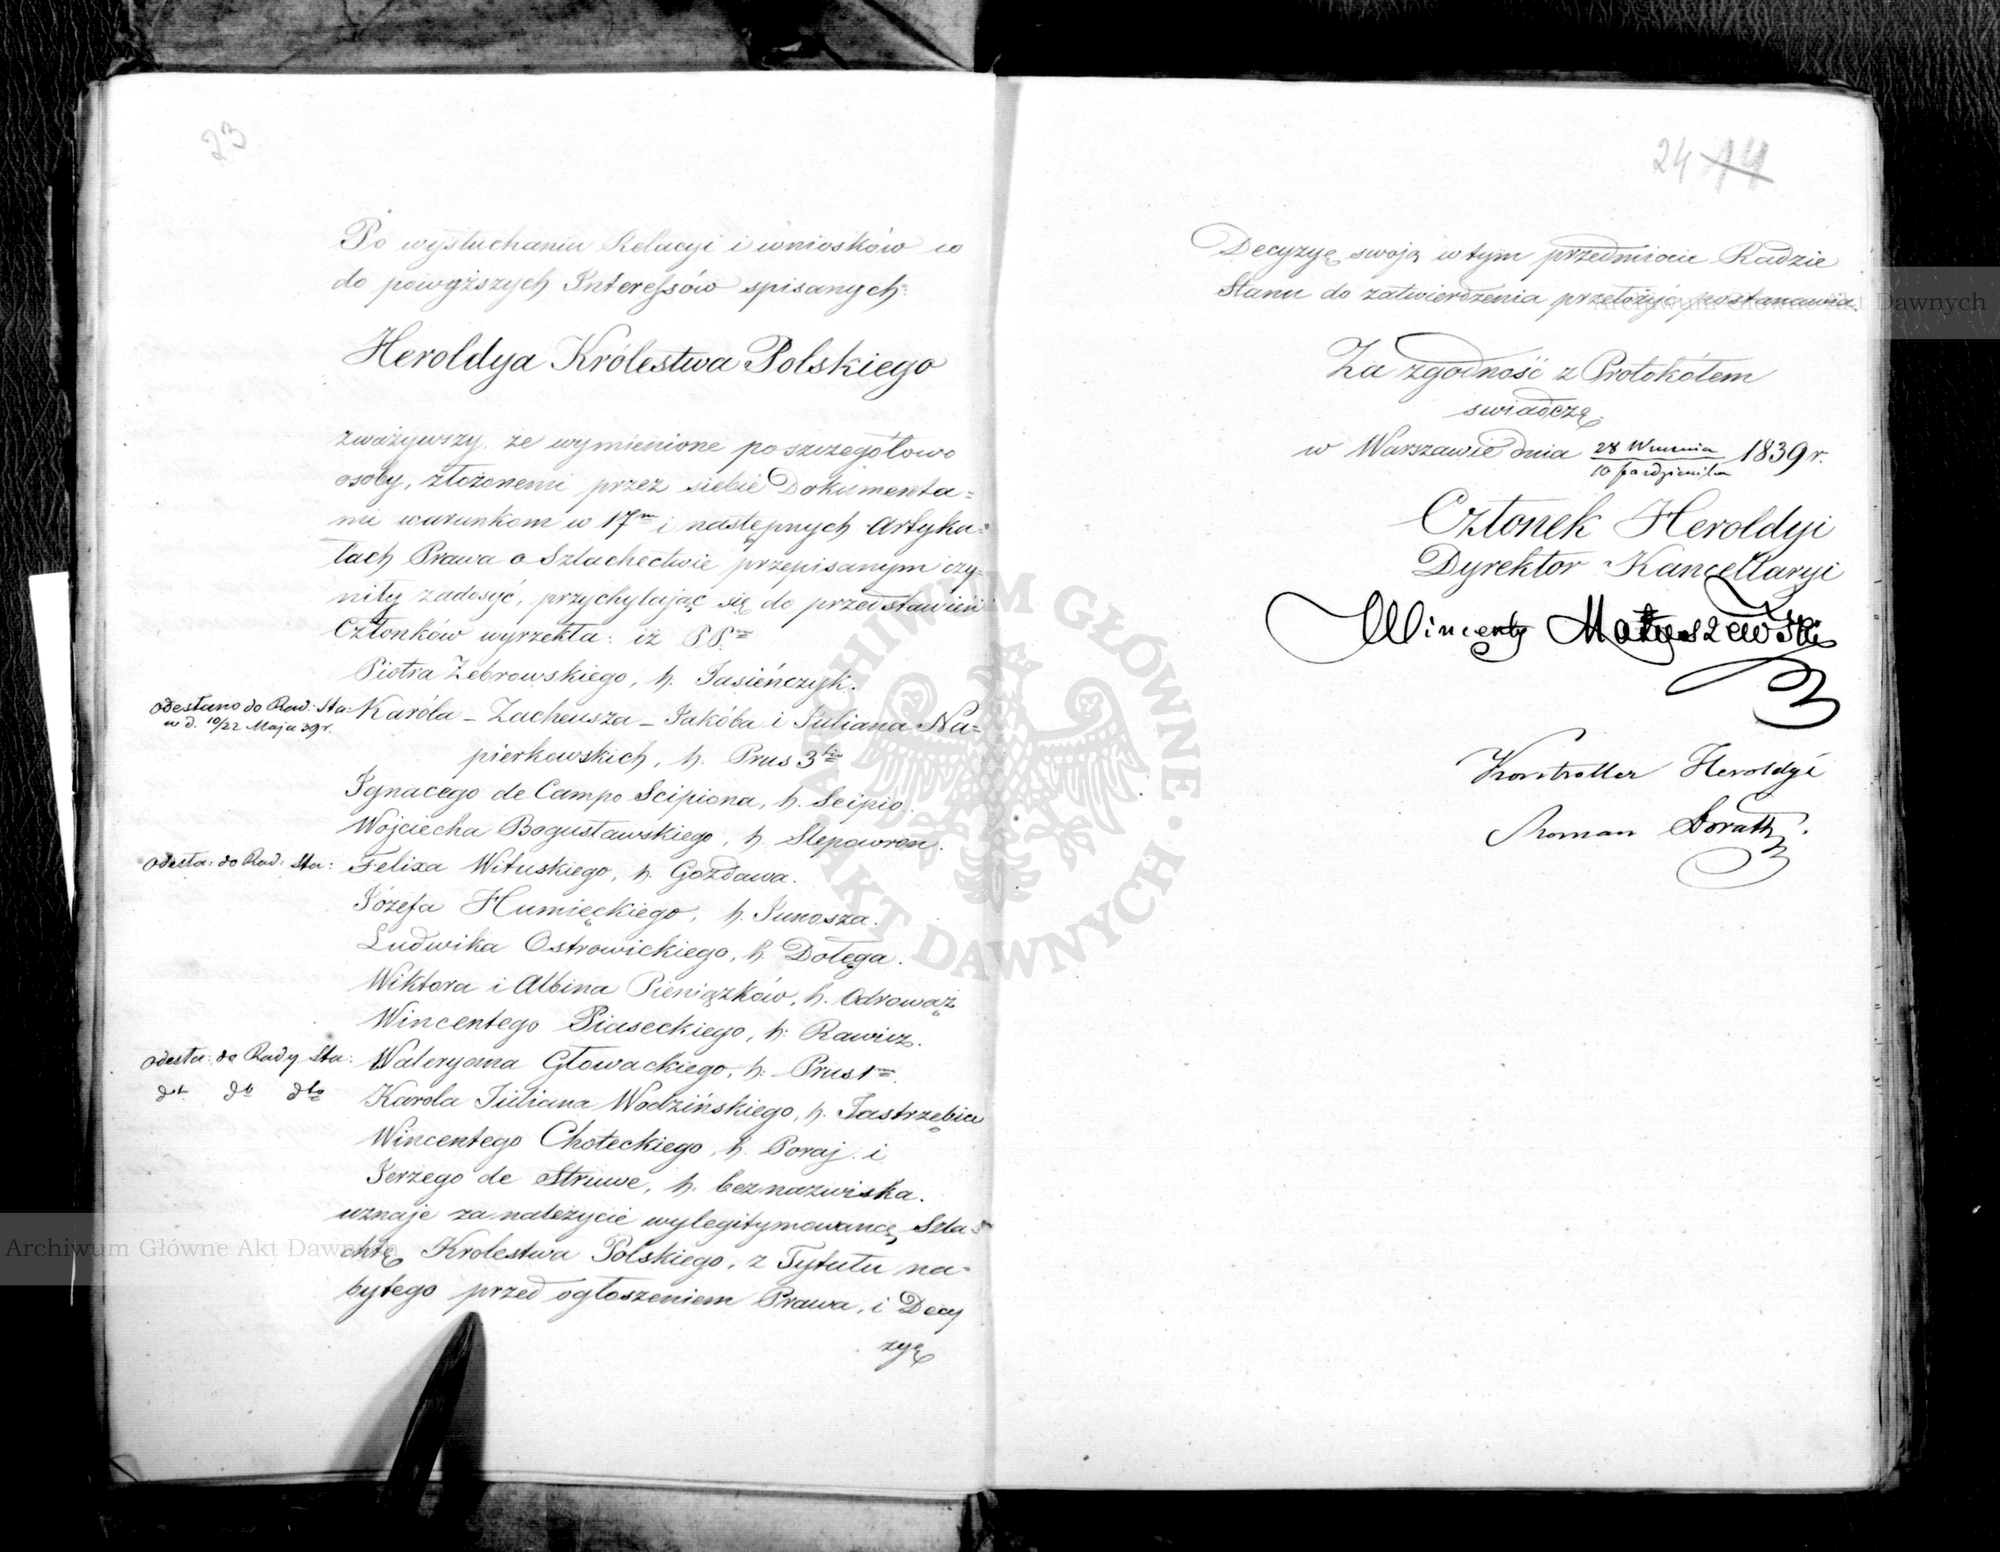 23
Po wysłuchaniu Relacyi i wniosków co
do powyższych Interessów spisanych
Heroldya Królestwa Polskiego
zważywszy, że wymienione poszczegółowo
osoby, złożonemi przez siebie Dokumenta=
mi warunkom w 17m i następnych Artyku=
łach Prawa o Szlachectwie przepisanym czy=
niły zadosyć, przychylając się do przedstawień
Członków wyrzekła: iż PP.
Piotra Zebrowskiego, h. Jasieńczyk.
odesłano do Rad: Sta: Karóla – Zacheusza – Jakóba i Juliana Na=
w d. 10/22 Maja 39 r.
pierkowskich, h. Prus 3tio
Ignacego de Campo Scipiona, h. Scipio.
Wojciecha Bogusławskiego, h. Slepowron.
odesła: do Rad: Sta: Felixa Wituskiego, h. Gozdawa.
Józefa Humięckiego, h. Junosza.
Ludwika Ostrowickiego, h. Dołęga.
Wiktora i Albina Pieniązków, h. Odrowąż
Wincentego Piaseckiego, h: Rawicz.
odesła: do Rady Sta: Waleryana Głowackiego, h: Prus 1mo
dto dto dto Karola Juliana Wodzińskiego, h. Jastrzębiec
Wincentego Chołeckiego, h. Poraj. i
Jerzego de Struwe, h. bez nazwiska.
uznaje za należycie wylegitymowaną Szla=
chtę Krolestwa Polskiego, z Tytułu na=
bytego przed ogłoszeniem Prawa, i Decy
zyę
24 14
Decyzyę swoją w tym przedmiocie Radzie
Stanu do zatwierdzenia przełożyć postanawia.
Za zgodność z Protokółem
swiadczę.
w Warszawie dnia 28 Wrzesnia / 10 Pazdziernika 1839 r.
Członek Heroldyi
Dyrektor Kancellaryi
Wincenty Matuszewski
Kontroller Heroldyi
Roman
ARCHIWUM GŁÓWNE AKT DAWNYCH
Archiwum Główne Akt Dawnych
Archiwum Główne Akt Dawnych